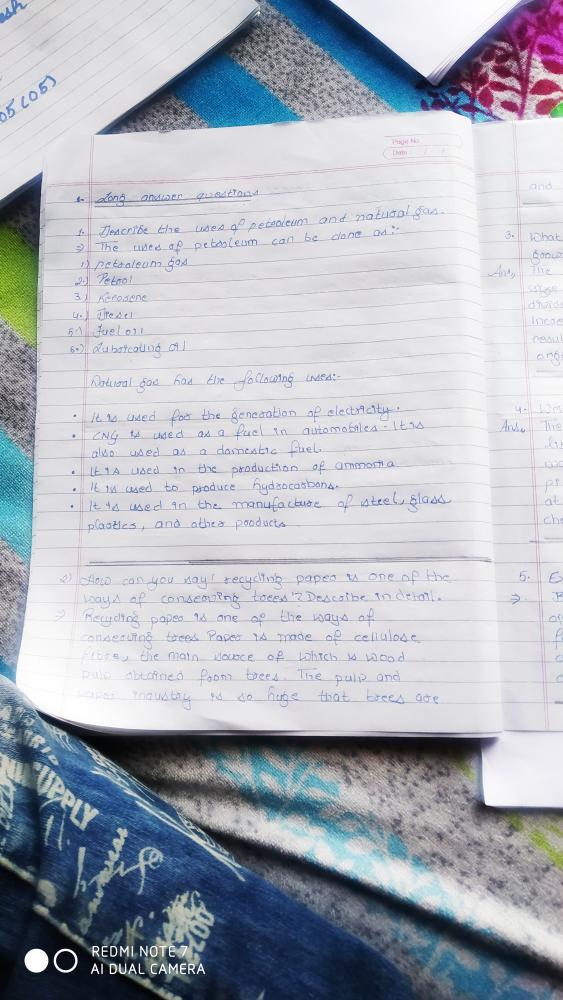 esh
05(05)
Page No.
Date / /
Long answer questions
1. Describe the uses of petroleum and natural gas.
⇒ The uses of petroleum can be done as:-
1) petroleum gas
2.) Petrol
3.) Kerosene
4.) Diesel
5.) Fuel oil
6.) Lubricating oil
Natural gas has the following uses:-
• It is used for the generation of electricity.
• CNG is used as a fuel in automobiles. It is
also used as a domestic fuel.
• It is used in the production of ammonia
• It is used to produce hydrocarbons.
• It is used in the manufacture of steel, glass
plastics, and other products
2) How can you say! recycling paper is one of the
ways of conserving trees? Describe in detail.
⇒ Recycling paper is one of the ways of
conserving trees Paper is made of cellulose
fibre, the main source of which is wood
pulp obtained from trees. The pulp and
paper industry is so huge that trees are
and
3. What
Ans, The
4.
Ans.
5.
⇒.
SUPPLY
REDMI NOTE 7
AI DUAL CAMERA